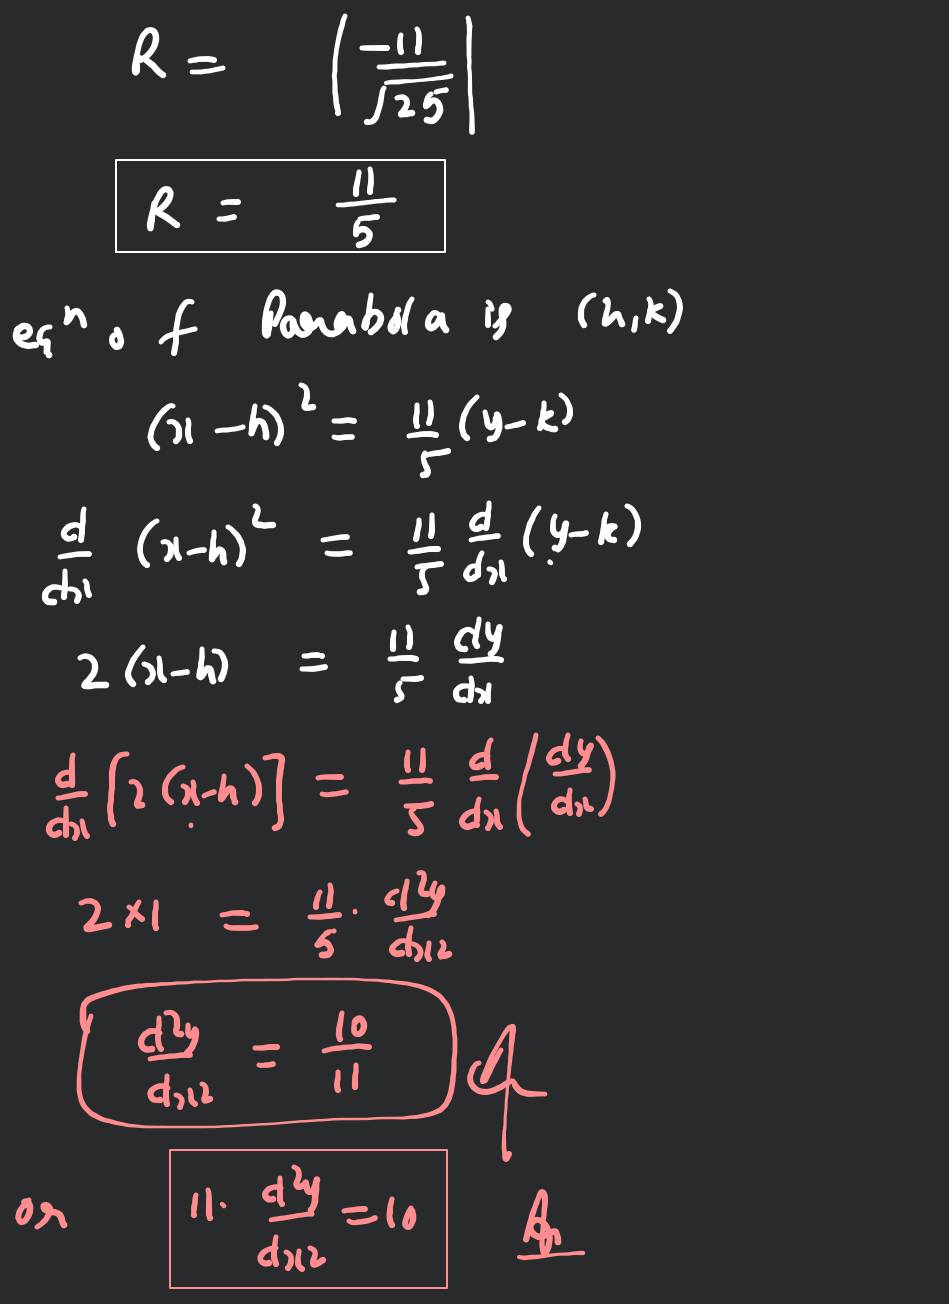 R = |-11/√25|
R = 11/5
eqⁿ of Parabola is (h,k)
(x-h)² = 11/5 (y-k)
d/dx (x-h)² = 11/5 d/dx (y-k)
2(x-h) = 11/5 dy/dx
d/dx [2(x-h)] = 11/5 d/dx (dy/dx)
2×1 = 11/5 · d²y/dx²
d²y/dx² = 10/11
or 11· d²y/dx² = 10